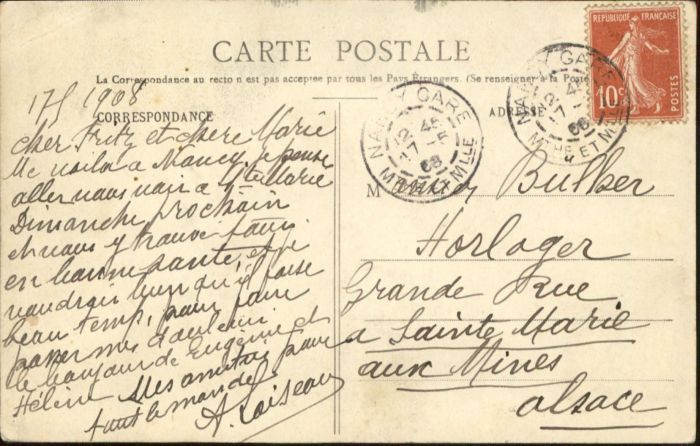 CARTE POSTALE
La Correspondance au recto n est pas acceptee par tous les Pays Étrangers. (Se renseigner à la Poste
CORRESPONDANCE
17/5 1908
cher Fritz et chere Marie
Me voila a Nancy, je pense
aller vous voir a Ste Marie
Dimanche prochain
et vous y trouve tous
en bonne sante, et je
voudrais bien qu'il fasse
beau temp, pour faire
passer mes douleur.
le bonjour de Eugénie et
Hélene Mes amities pour
tout le monde
A. Loiseau
ADRESSE
RÉPUBLIQUE FRANÇAISE
10c
POSTES
NANCY GARE
12 45
17 - 5
08
MTHE ET MLLE
NANCY GARE
17 - 5
08
MTHE ET MLLE
M Bulher
Horloger
Grande Rue
a Sainte Marie
aux Mines
alsace